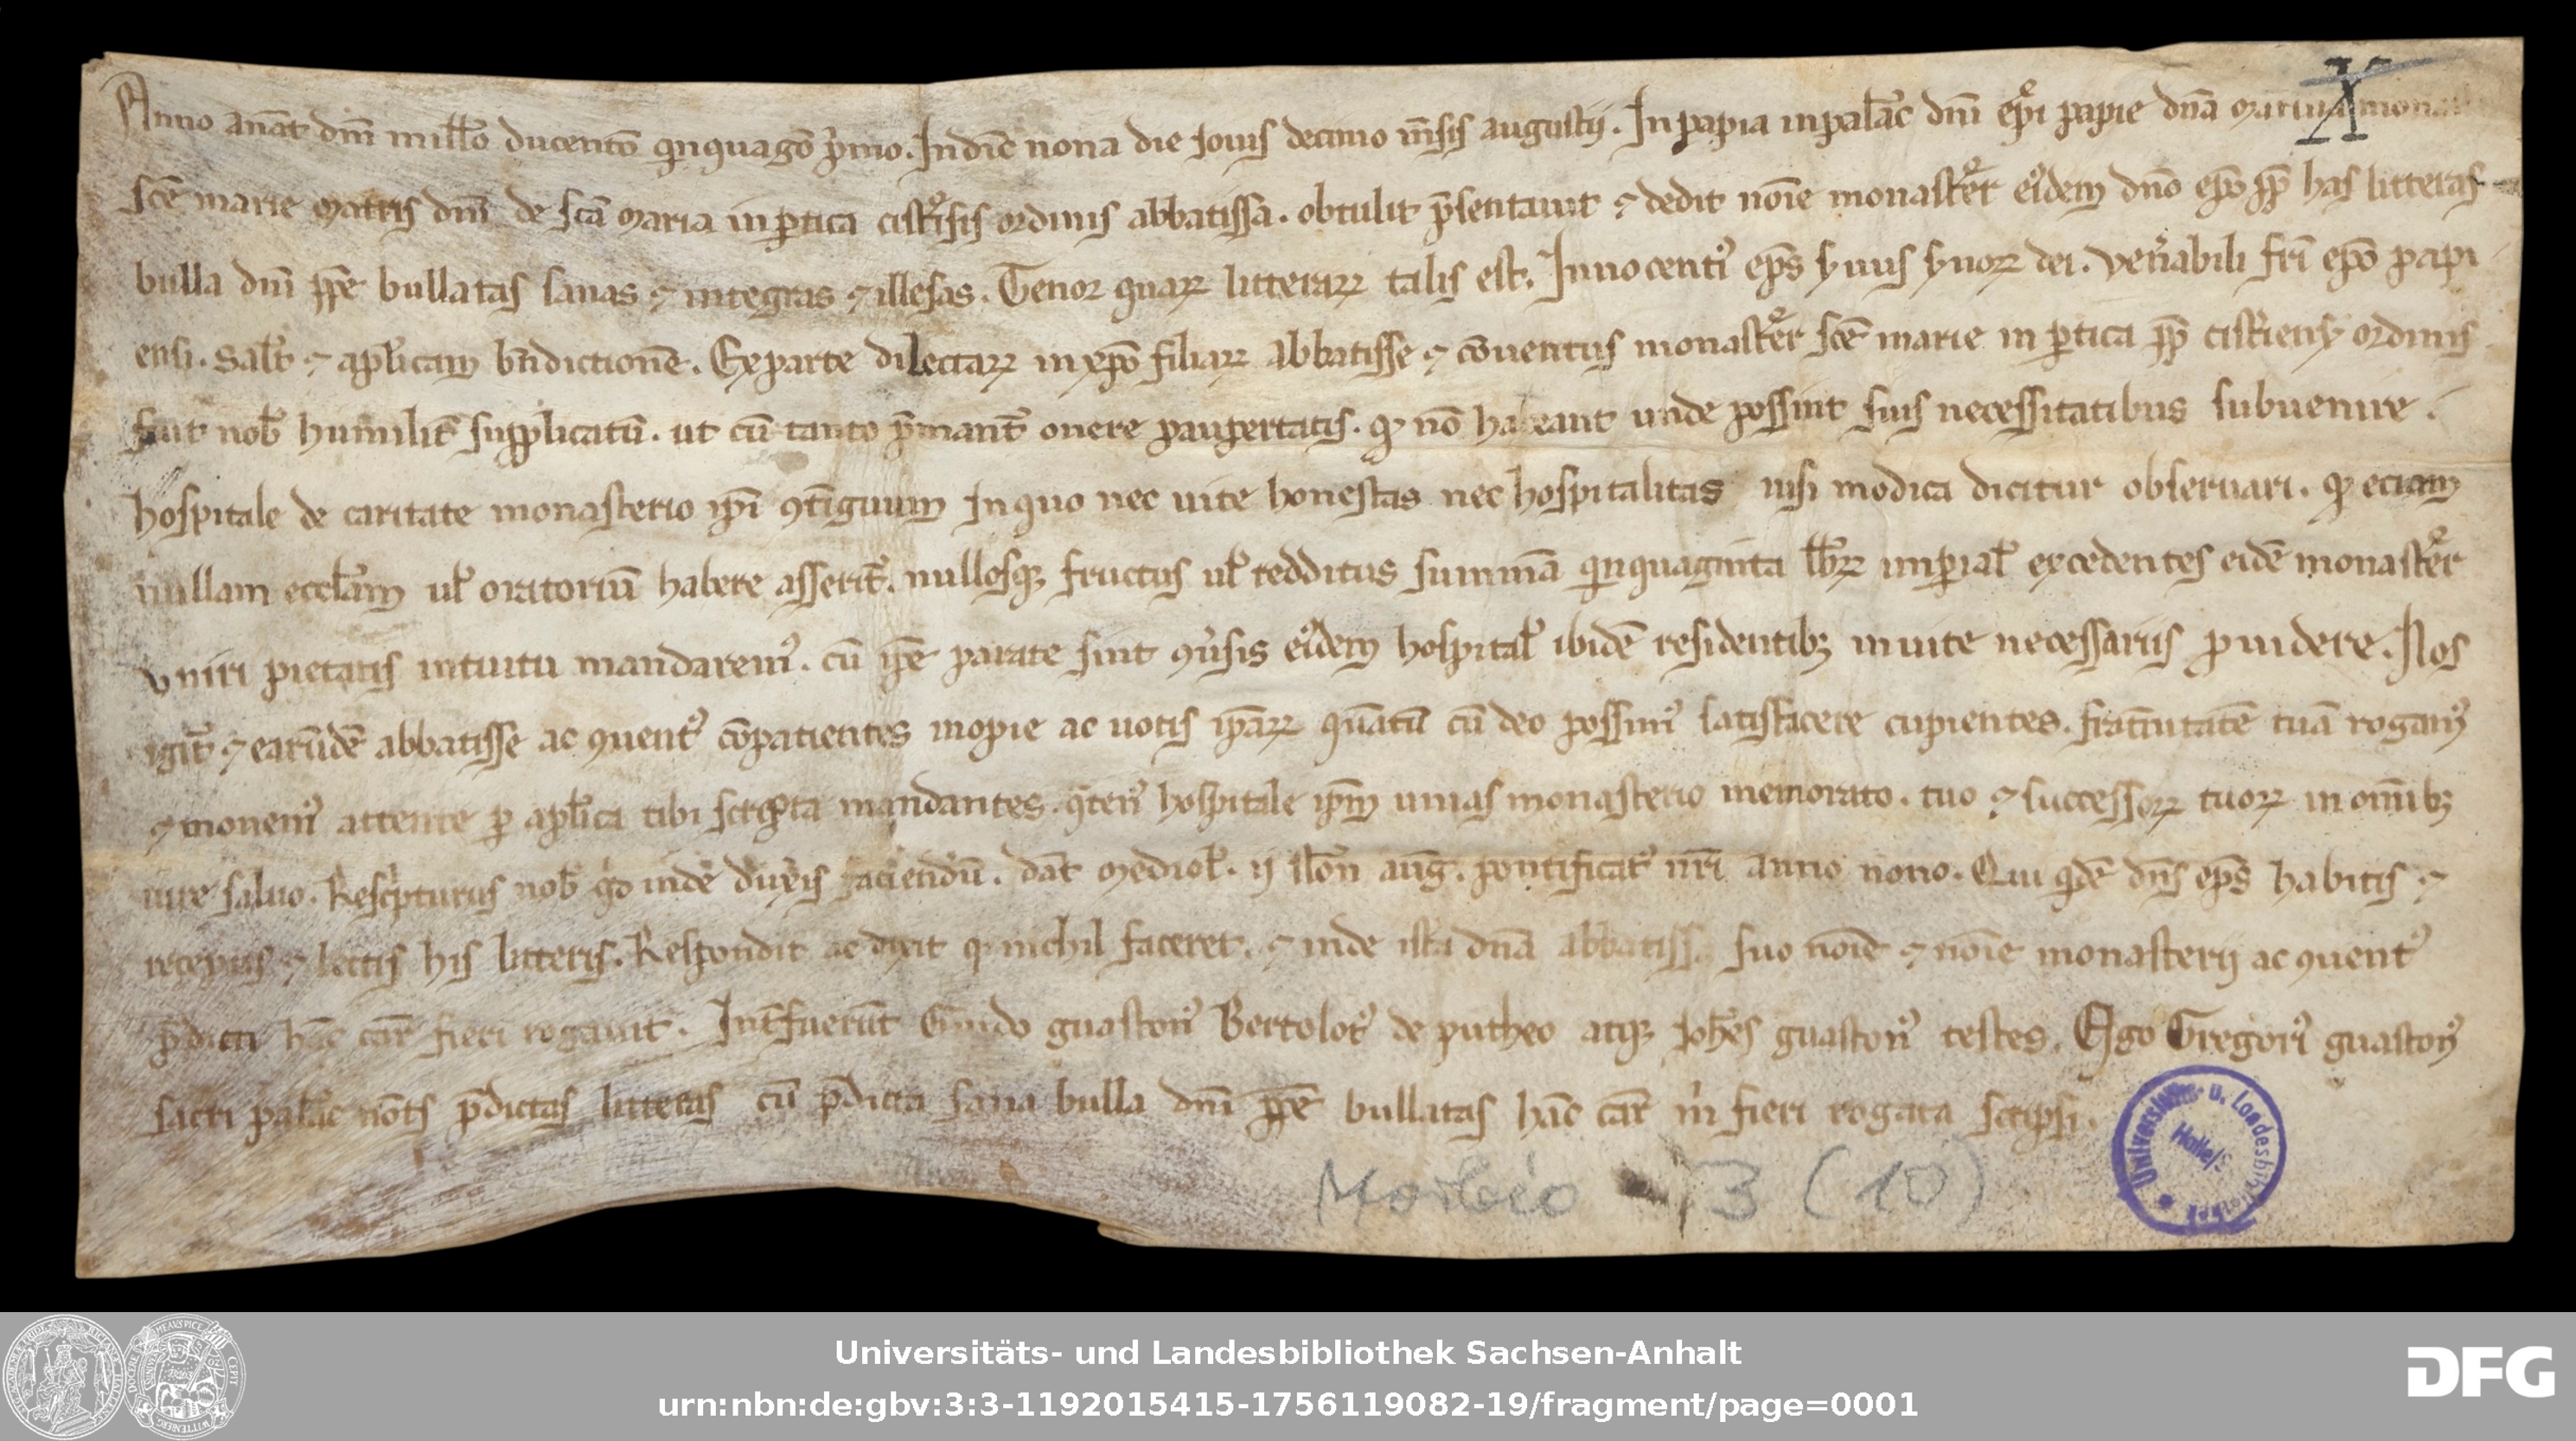 Anno a nat̄ dn̄i mill̄o ducentō qͥnquagō pͥmo. Indic̄ nona die Jouis decimo mn̄sis augusti. In papia in palac̄ dn̄i ep̄i papie dn̄a
sc̄e marie matris dn̄i de sc̄a maria in ꝑtica cist̄ꝰsis ordinis abbatissa. obtulit p̄sentauit ⁊ dedit nōie monast̄er eidem dn̄o ep̄o pp̄ has litteras
bulla dn̄i pp̄e bullatas sanas ⁊ integras ⁊ illesas. Tenor quaꝝ litteraꝝ talis est. Innocentiꝰ ep̄s s̓uus s̓uoꝝ dei. ven̓abili fr̄i ep̄o papi
ensi. sal̄t ⁊ apl̓icam bn̄dictionē. Ex parte dilectaꝝ in xp̄o filiaꝝ abbatisse ⁊ cōuentus monast̄er sc̄e marie in ꝑtica pp̄ cist̓ciensꝭ ordinis
fuit nob̄ humilit̓ supplicatū. ut cū tanto p̄mant̓ onere paupertatis. ꝙ nō habeant unde possint suis necessitatibus subuenire.
hospitale de caritate monasterio ip̄i ꝯtiguum In quo nec uite honestas nec hospitalitas nisi modica dicitur obseruari. ꝙ eciam
nullam eccl̓iam ul̓ oratoriū habere asserit̓. nullosqꝫ fructus ul̓ redditus summā qͥnquaginta lb̄ꝝ imꝑial̓ excedentes eidē monast̄er
vniri pietatis intuitu mandaremꝰ. cū ip̄e parate sint ꝯu̓sis eiꝰdem hospital̓ ibidē residentibꝫ in uite necessariis ꝓuidere. Nos
igit̓ ⁊ earūdē abbatisse ac ꝯuentꝰ cōpatientes inopie ac uotis ip̄aꝝ quātū cū deo possimꝰ satisfacere cupientes. frat̓nitatē tuā rogamꝰ
⁊ monemꝰ attente ꝑ apl̓ica tibi scripta mandantes. qͣtenꝰ hospitale ip̄m unias monasterio memorato. tuo ⁊ successoꝝ tuoꝝ in omībꝫ
iure saluo. Rescͥpturus nob̄ qͥd inde dux̓is faciendū. dat̄ mediol̓. ij Non̄ aug̓. pontificatꝰ nr̄i anno nono. Qui qͥdē dn̄s ep̄s habitis ⁊
receptis ⁊ lectis his litteris. Respondit ac dixit ꝙ nichil faceret. ⁊ inde ista dn̄a abbatissa suo nōie ⁊ nōie monasterij ac ꝯuentꝰ
p̄dicti hāc car̄ fieri rogauit. Int̓fuerūt Guido guastonꝰ Bertolotꝰ de putheo atqꝫ Joh̄es guastonꝰ testes. Ego Gregoriꝰ guastonꝰ
sacri palac̄ not̄s p̄dictas litteras cū p̄dicta sana bulla dn̄i pp̄e bullatas hāc car̄ m̓ fieri rogata scripsi.
Morbio 3 (10)
Universitäts- u. Landesbibliothek Halle/S
Universitäts- und Landesbibliothek Sachsen-Anhalt
urn:nbn:de:gbv:3:3-1192015415-1756119082-19/fragment/page=0001
DFG